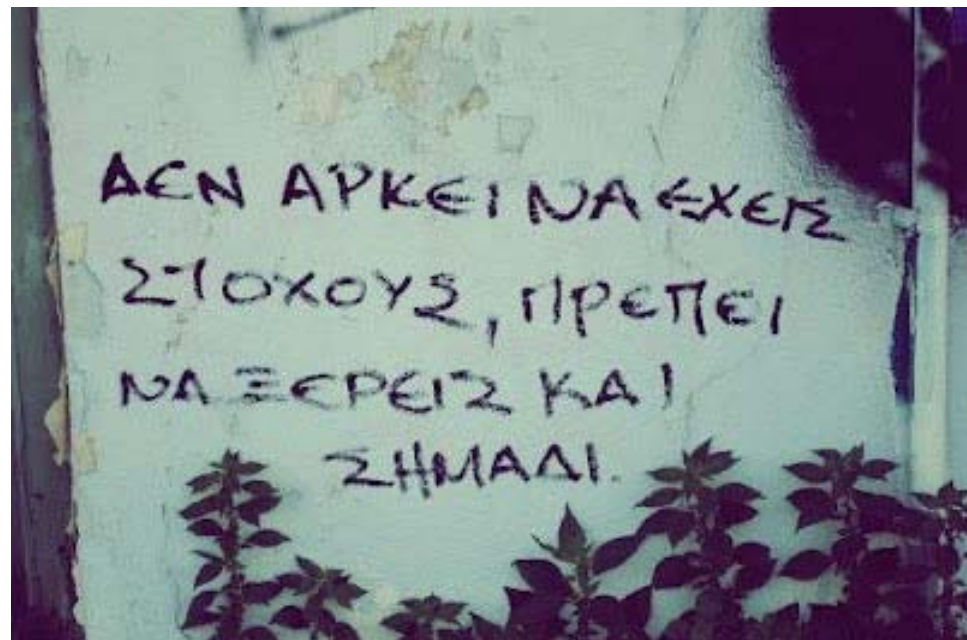 ΔΕΝ ΑΡΚΕΙ ΝΑ ΕΧΕΙΣ
ΣΤΟΧΟΥΣ, ΠΡΕΠΕΙ
ΝΑ ΞΕΡΕΙΣ ΚΑΙ
ΣΗΜΑΔΙ.